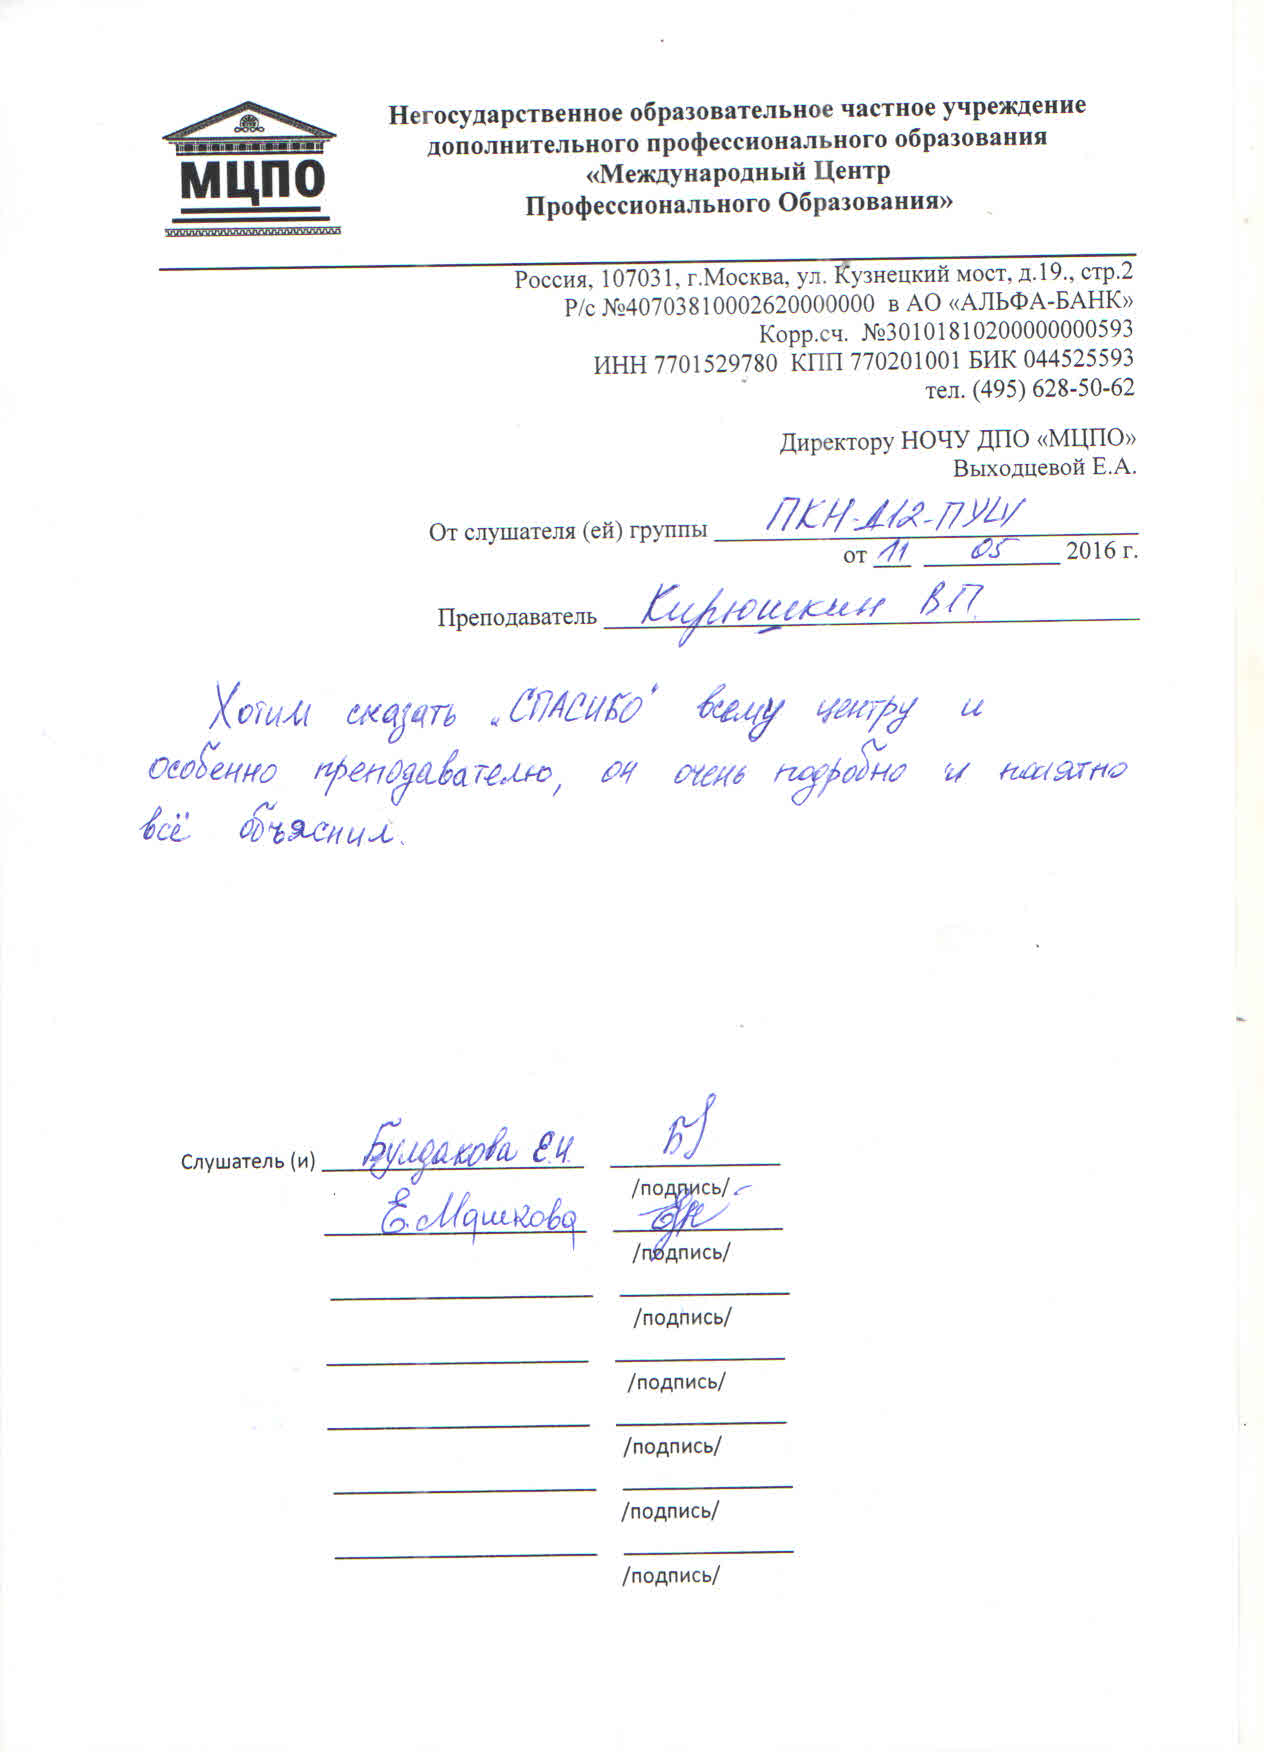 МЦПО
Негосударственное образовательное частное учреждение
дополнительного профессионального образования
«Международный Центр
Профессионального Образования»
Россия, 107031, г.Москва, ул. Кузнецкий мост, д.19., стр.2
Р/с №40703810002620000000 в АО «АЛЬФА-БАНК»
Корр.сч. №30101810200000000593
ИНН 7701529780 КПП 770201001 БИК 044525593
тел. (495) 628-50-62
Директору НОЧУ ДПО «МЦПО»
Выходцевой Е.А.
От слушателя (ей) группы ПКН-Д12-ПУЦ
от 11 05 2016 г.
Преподаватель Кирюшкин В П.
Хотим сказать „СПАСИБО" всему центру и
особенно преподавателю, он очень подробно и понятно
всё объяснил.
Слушатель (и) Булдакова Е.И.
/подпись/
Е. Машкова
/подпись/
/подпись/
/подпись/
/подпись/
/подпись/
/подпись/